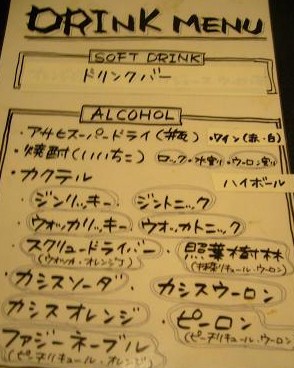 DRINK MENU
SOFT DRINK
ドリンクバー
ALCOHOL
・アサヒスーパードライ(瓶) ・ワイン(赤・白)
・焼酎(いいちこ) ロック・水割り・ウーロン割り
・カクテル
ハイボール
・ジンリッキー ジントニック
・ウォッカリッキー ウォッカトニック
・スクリュードライバー ・照葉樹林
(ウォッカ・オレンジ) (抹茶リキュール・ウーロン)
・カシスソーダ ・カシスウーロン
カシスオレンジ ・ピーロン
(ピーチリキュール・ウーロン)
ファジーネーブル
(ピーチリキュール・オレンジ)